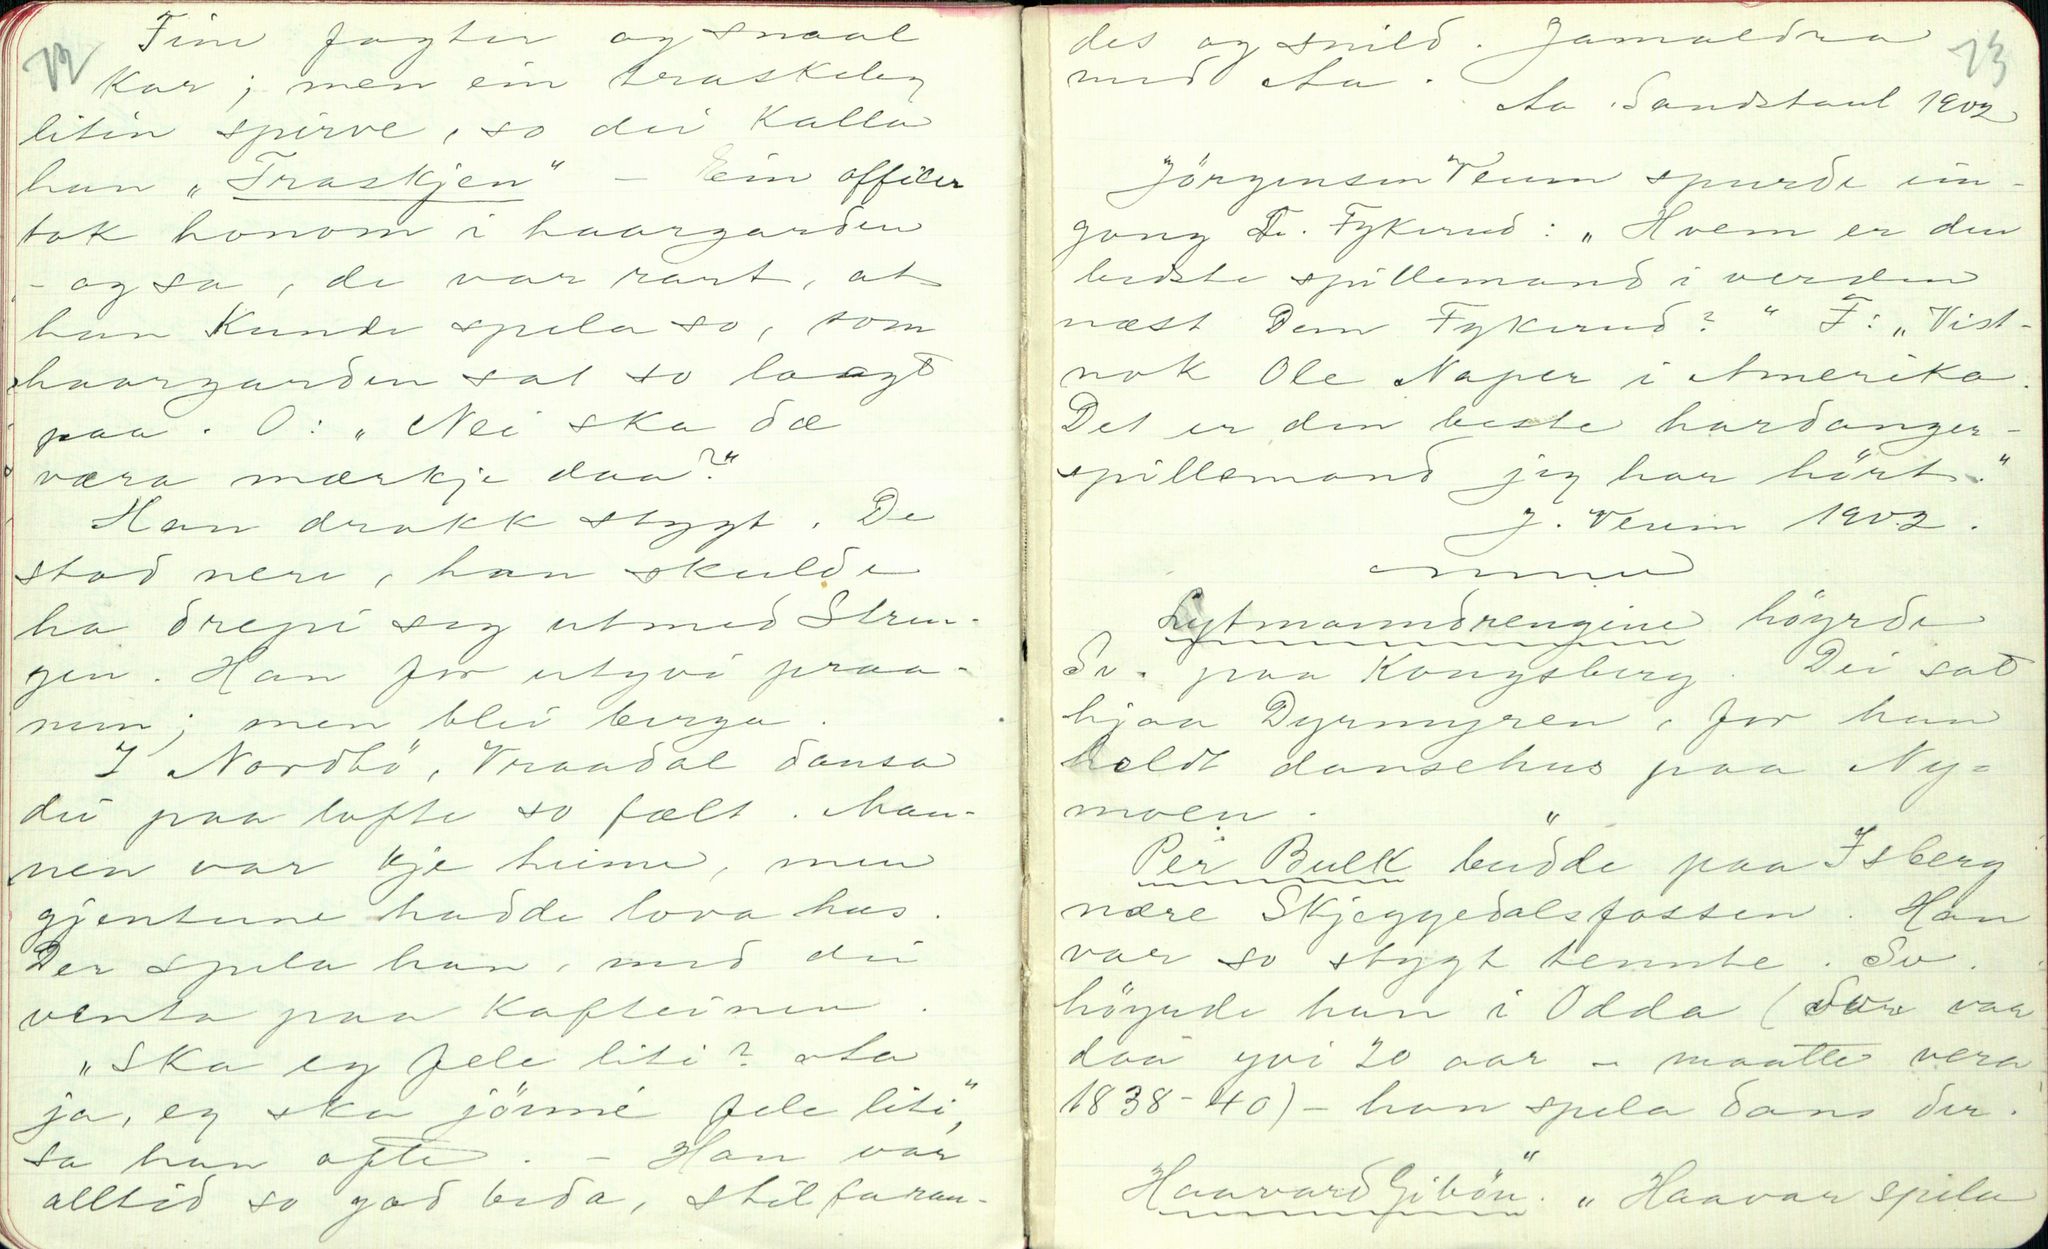 72
Fine fagter og snaal
Kar; men ein traskeleg
litin spirve, so dei kalla
han „Traskjen“ – Ein officer
tok honom i haargarden
– og sa, de var rart, at
han kunde spela so, som
haargarden sat so laagt
paa. O: „Nei ska dæ
væra mærkje daa?“
Han drakk stygt. De
stod nere, han skulde
ha drepi seg utmed Strengen.
gen. Han for utyvi praa-
men; men blei berga.
I Nordbö, Vraadal dansa
dei paa lofte so fælt. Man-
nen var kje heime, men
gjentune hadde lova hus.
Der spela han, med dei
venta paa Kafteinen.
„Ska eg fele liti? Aa
ja, eg ska jörme fele liti“,
sa han ofte. – Han var
alltid so god beda, stilfaran-
73
des og snild. Jamaldra
med Aa.
Aa. Sandstaul 1902
Jörgensen Veum spurde ein-
gong L. Fykerud: „Hvem er den
bedste spillemand i verden
næst Dem Fykerud?“ F: „Vist-
nok Ole Naper i Amerika.
Det er den beste hardanger-
spillemand jeg har hört.“
J. Veum 1902.
Lytmanndrengine höyrde
Sv. paa Kongsberg. Dei sat
hjaa Dyrmyren, for han
heldt dansehus paa Ny-
moen.
"
Per Bulk budde paa Isberg
nære Skjeggedalsfossen. Han
var so stygt tennte. Sv.
höyrde han i Odda (Sv. var
daa yvi 20 aar – maatte vera
1838–40) – han spela dans der.
"
Haavard Giböen. „Haavar spela